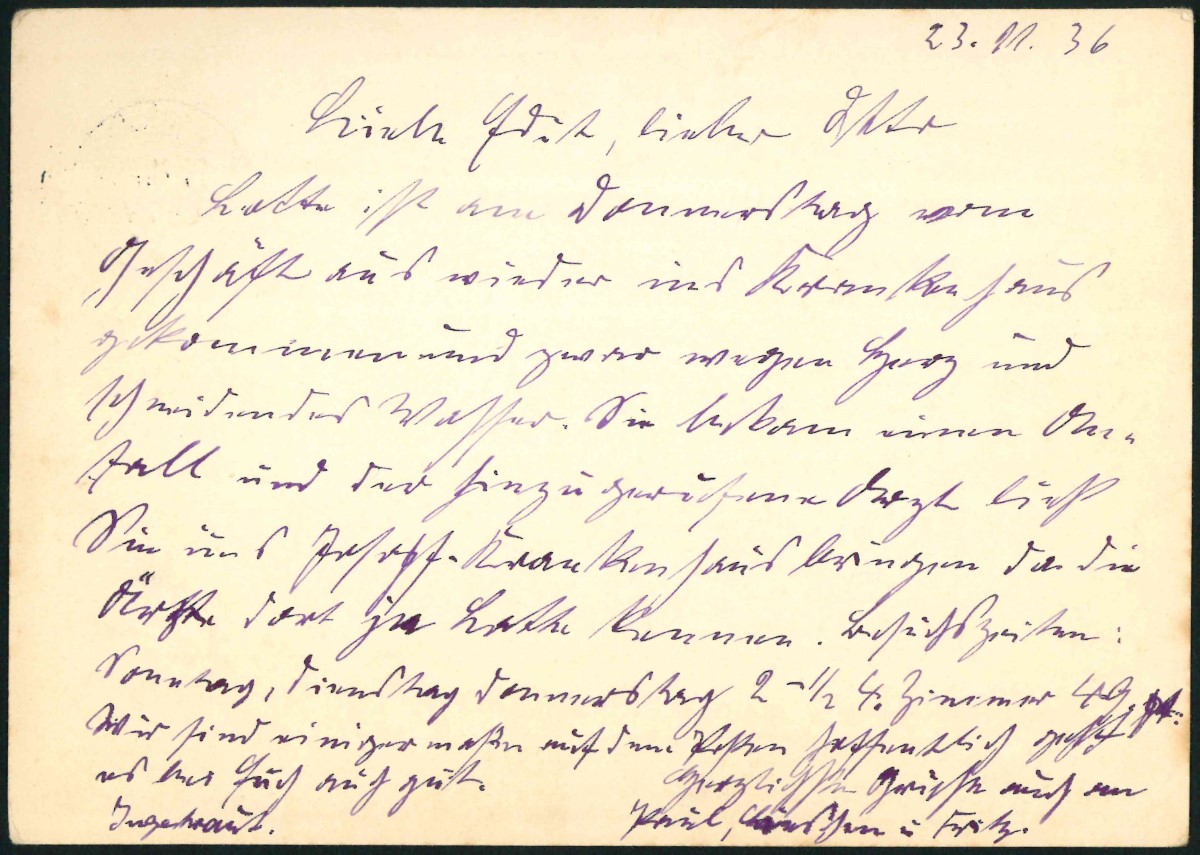 23.11.36
Liebe Edit, lieber Otto
Lotte ist am Donnerstag vom
Geschäft aus wieder ins Krankenhaus
gekommen und zwar wegen Herz und
schneidendes Wasser. Sie bekam einen An-
fall und der hinzugerufene Arzt ließ
Sie ins Josef-Krankenhaus bringen da die
Ärzte dort ja Lotte kennen. Besuchszeiten:
Sonntag, Dienstag Donnerstag 2-1/2 4. Zimmer 49
Wir sind einigermaßen auf dem Posten hoffentlich geht
es bei Euch auch gut. Herzlichste Grüße auch an
Ingetraut. Paul, u Fritz.